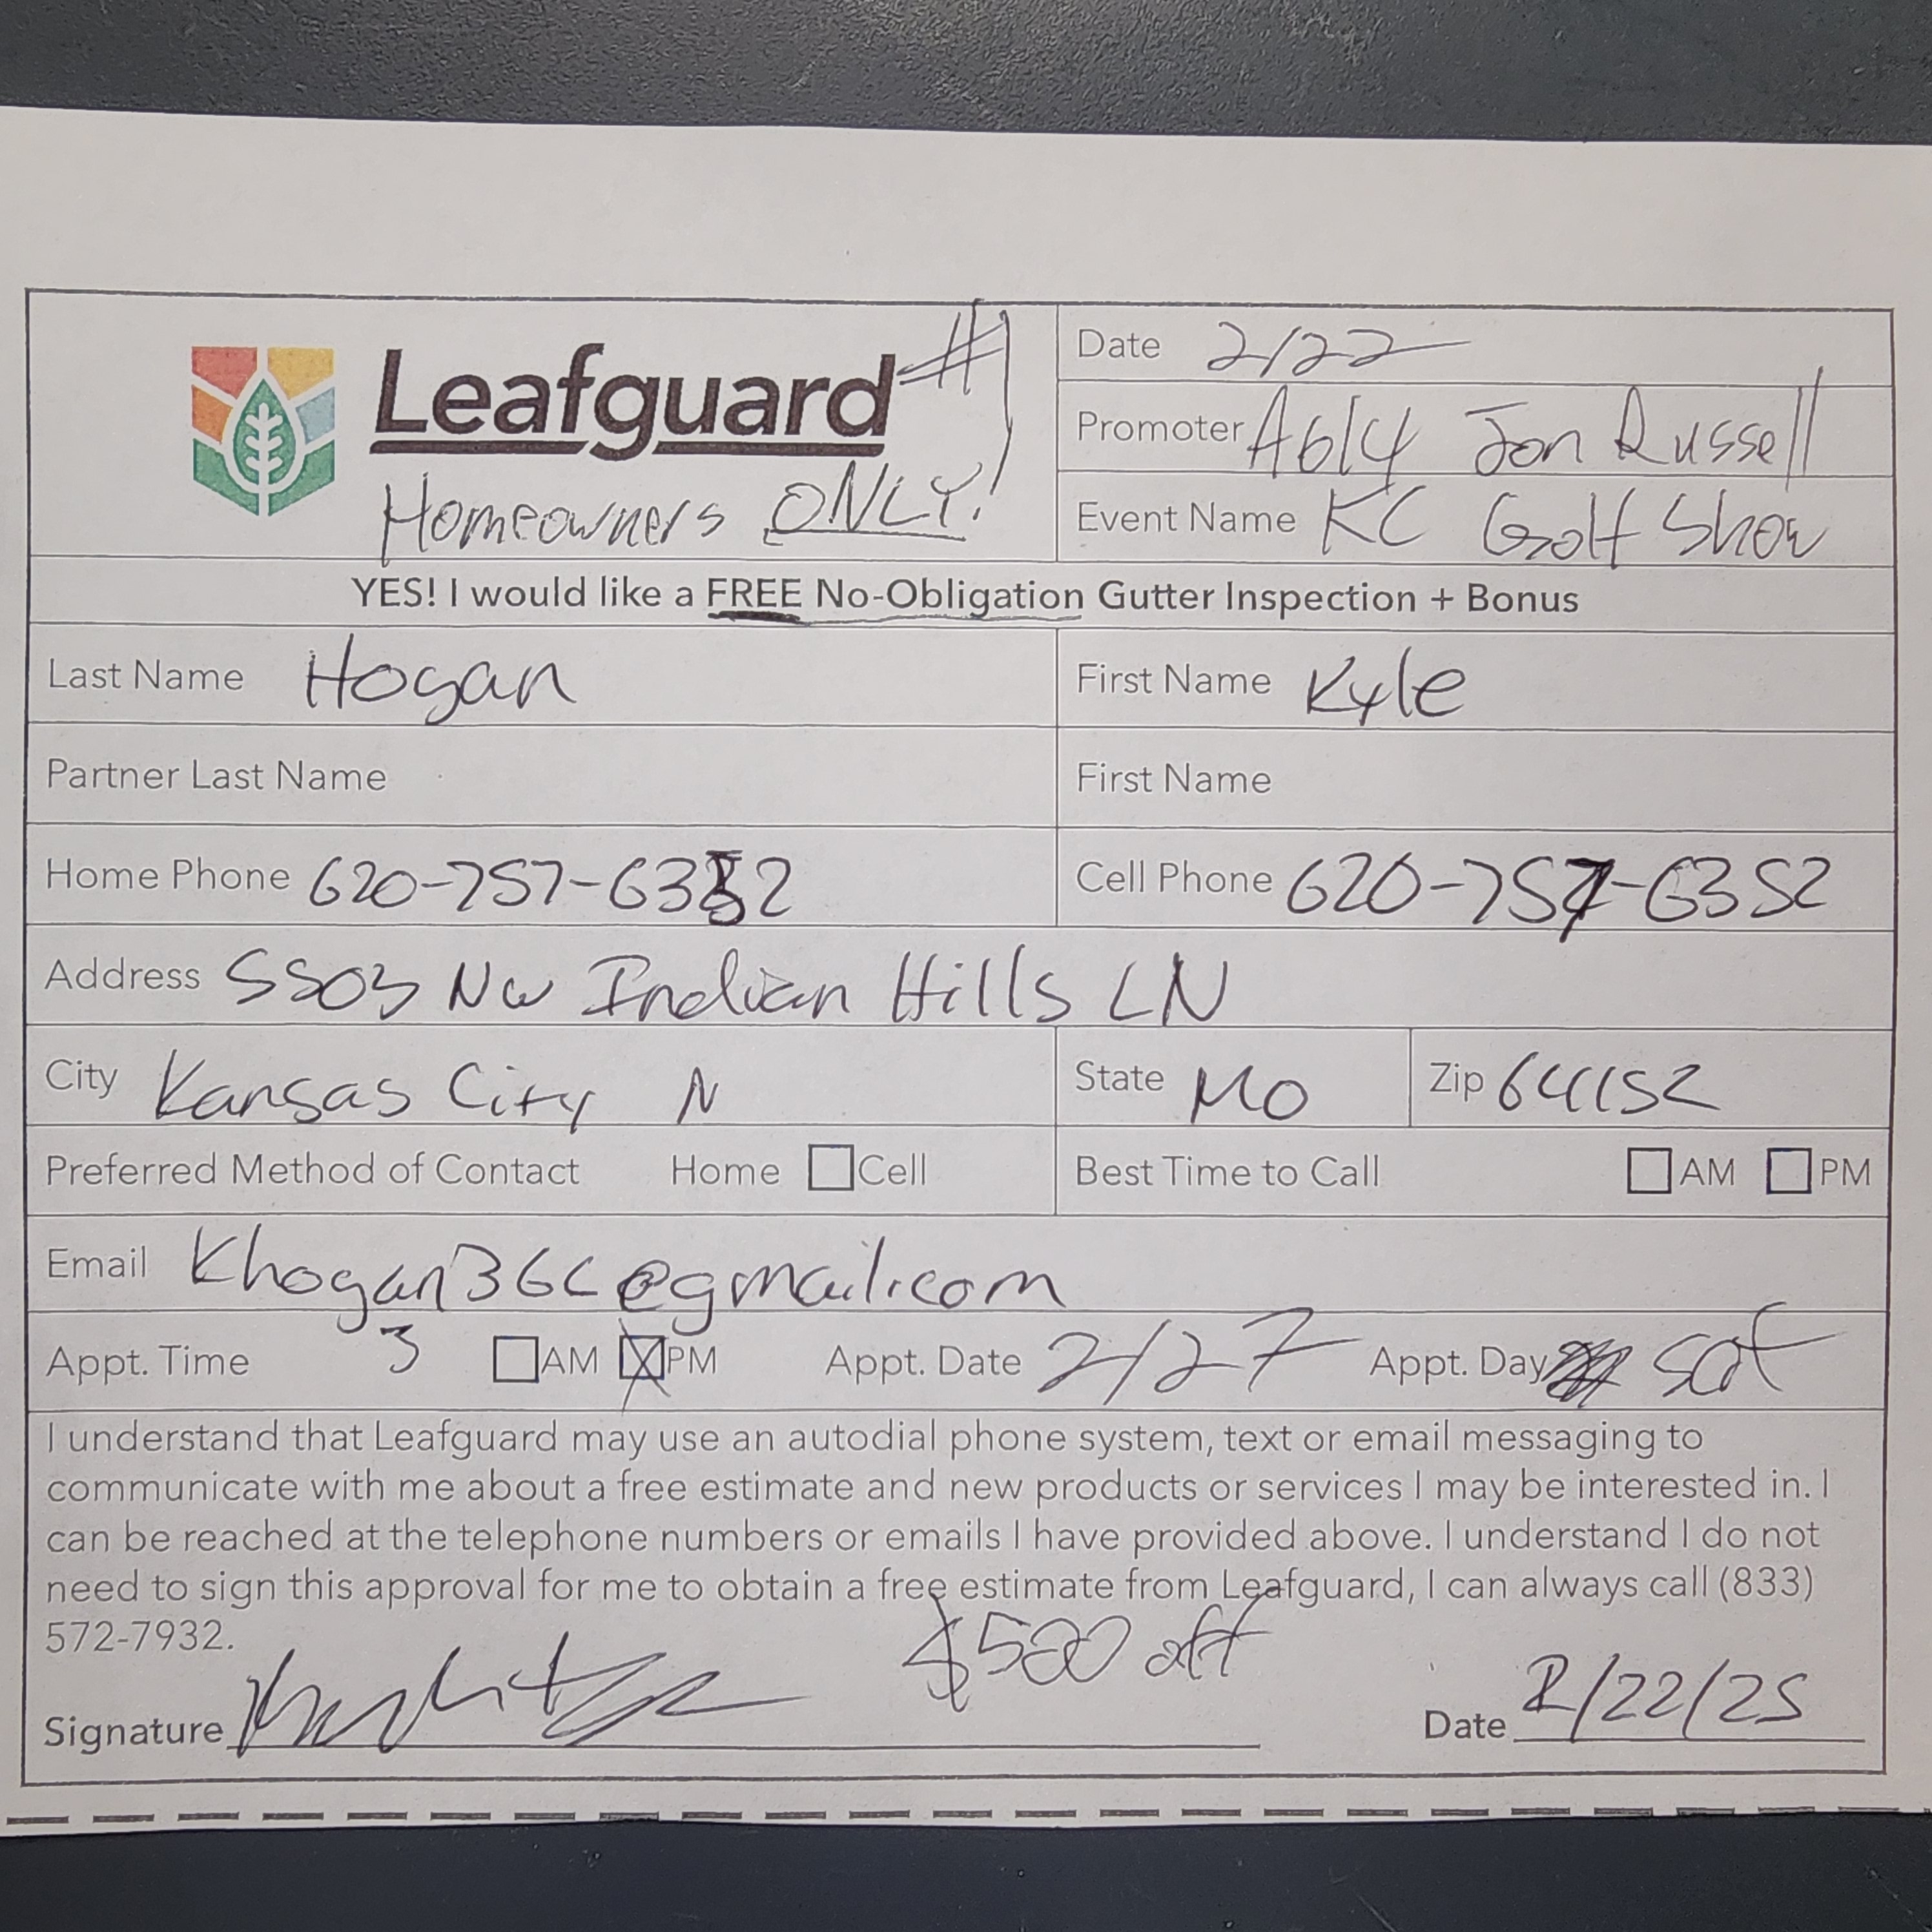 Leafguard #1
Homeowners ONLY!
Date 2/22
Promoter A614 Jon Russell
Event Name KC Golf Show
YES! I would like a FREE No-Obligation Gutter Inspection + Bonus
Last Name Hogan
First Name Kyle
Partner Last Name
First Name
Home Phone 620-757-6352
Cell Phone 620-757-6352
Address 5503 NW Indian Hills LN
City Kansas City N
State MO
Zip 64152
Preferred Method of Contact Home Cell
Best Time to Call AM PM
Email
Appt. Time 3 AM PM Appt. Date 2/27 Appt. Day Sat
I understand that Leafguard may use an autodial phone system, text or email messaging to
communicate with me about a free estimate and new products or services I may be interested in. I
can be reached at the telephone numbers or emails I have provided above. I understand I do not
need to sign this approval for me to obtain a free estimate from Leafguard, I can always call (833)
572-7932.
$500 off
Signature
Date 2/22/25